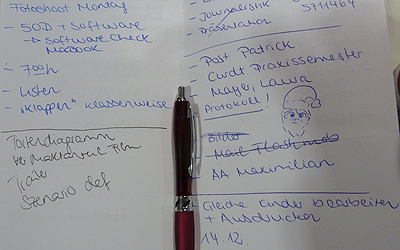 Fotoshoot Montag
- 50D + Software
→ Software Check
MacBook
- 700h
- Listen
- "Klappen" klassenweise
Tortendiagramm
Trailer
Szenario def
- Journalistik
- Präsentation
5711464
- Post Patrick
- Cwdt Praxissemester
- Mayer, Laura
Protokoll!
- Bilder
- Mail Flashmob
- AA Maximilian
- Gleiche Kinder bearbeiten
+ Ausdrucken
14.12.